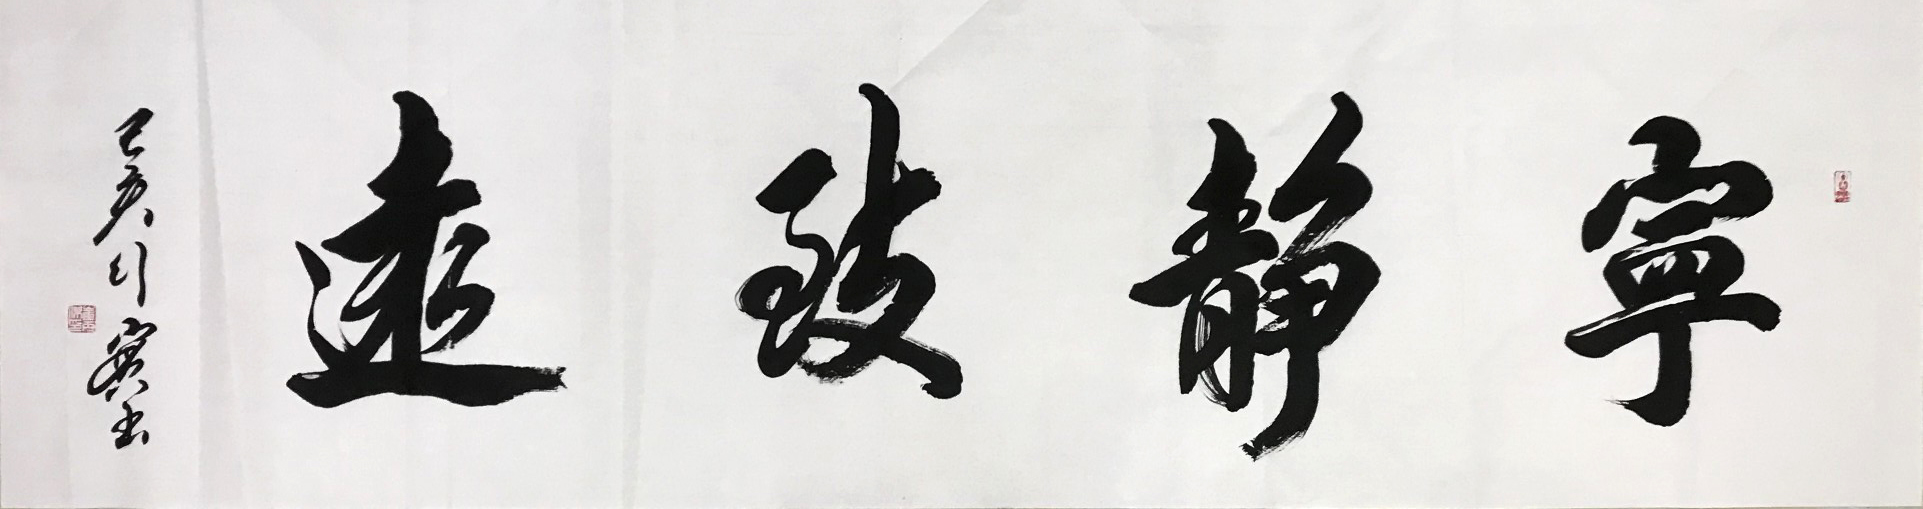 寧靜致遠
己亥